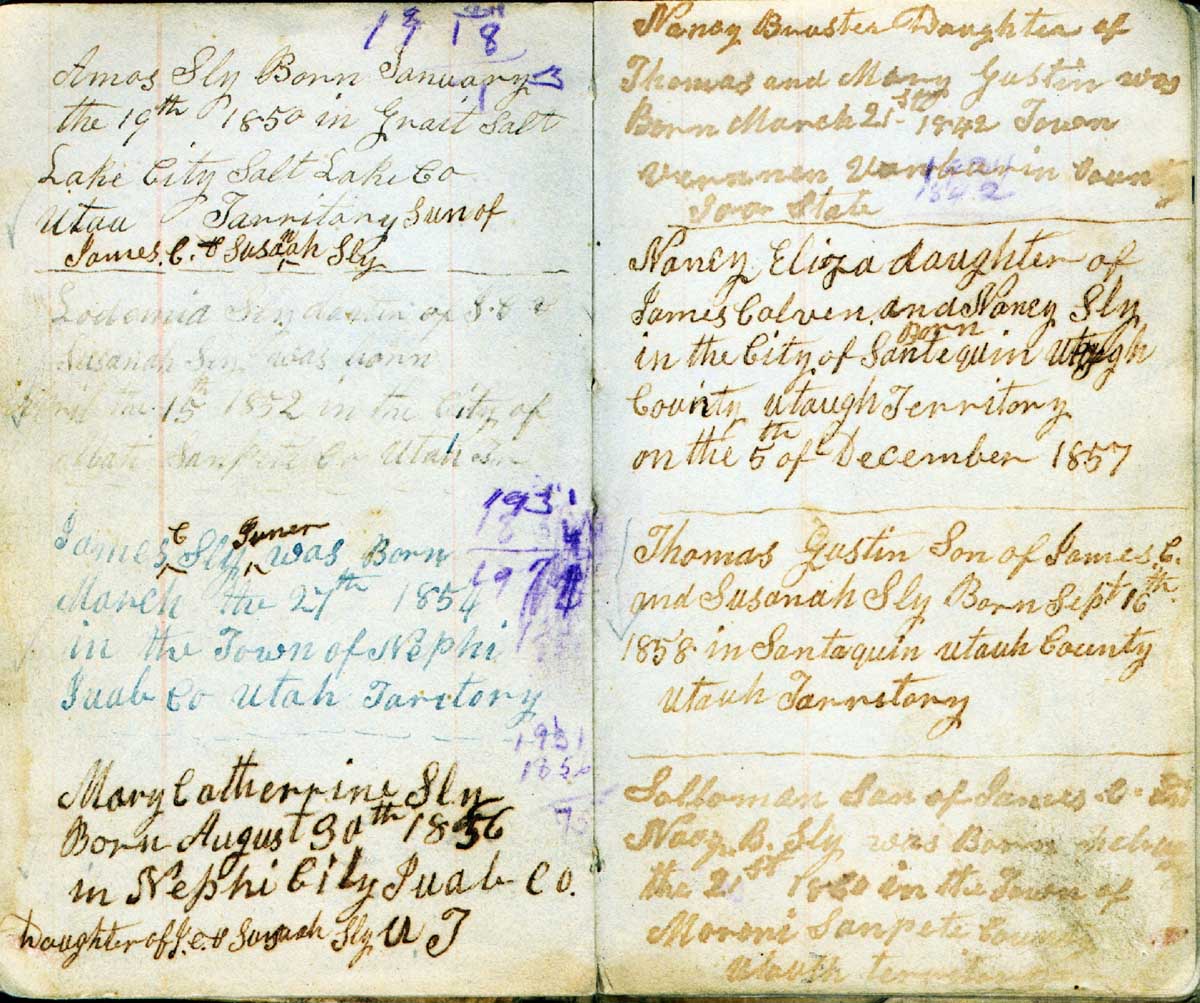 19 18
Amos Sly Born January
the 19th 1850 in Grait Salt
Lake City Salt Lake Co
Utau Tarritory Sun of
James. C. & Susanah Sly
Lodemia Sly of J. C &
Susanah Sly was born
the 15th 1852 in the City of
Sanpete Co Utah
James C Sly Juner was Born
March the 27th 1854
in the Town of Nephi
Juab Co Utah Taritory
Mary Catherrine Sly
Born August 30th 1856
in Nephi City Juab Co.
Daughter of J. C. & Susanah Sly U T
1931
1931
185
75
Nancy Bruster Daughter of
Thomas and Mary Gustin was
Born March 21st 1842 Town
Vernnen Vanbarin County
State
1842
Nancy Eliza daughter of
James Calven and Nancy Sly
Born
in the City of Santequin Utaugh
County Utaugh Territory
on the 5th of December 1857
Thomas Gustin Son of James. C.
and Susanah Sly Born Sept 16th
1858 in Santaquin Utauh County
Utauh Tarrstory
Solloman Son of James. C.
B. Sly was Born
the 21st 1860 in the Town of
Moroni Sanpete
Utauh